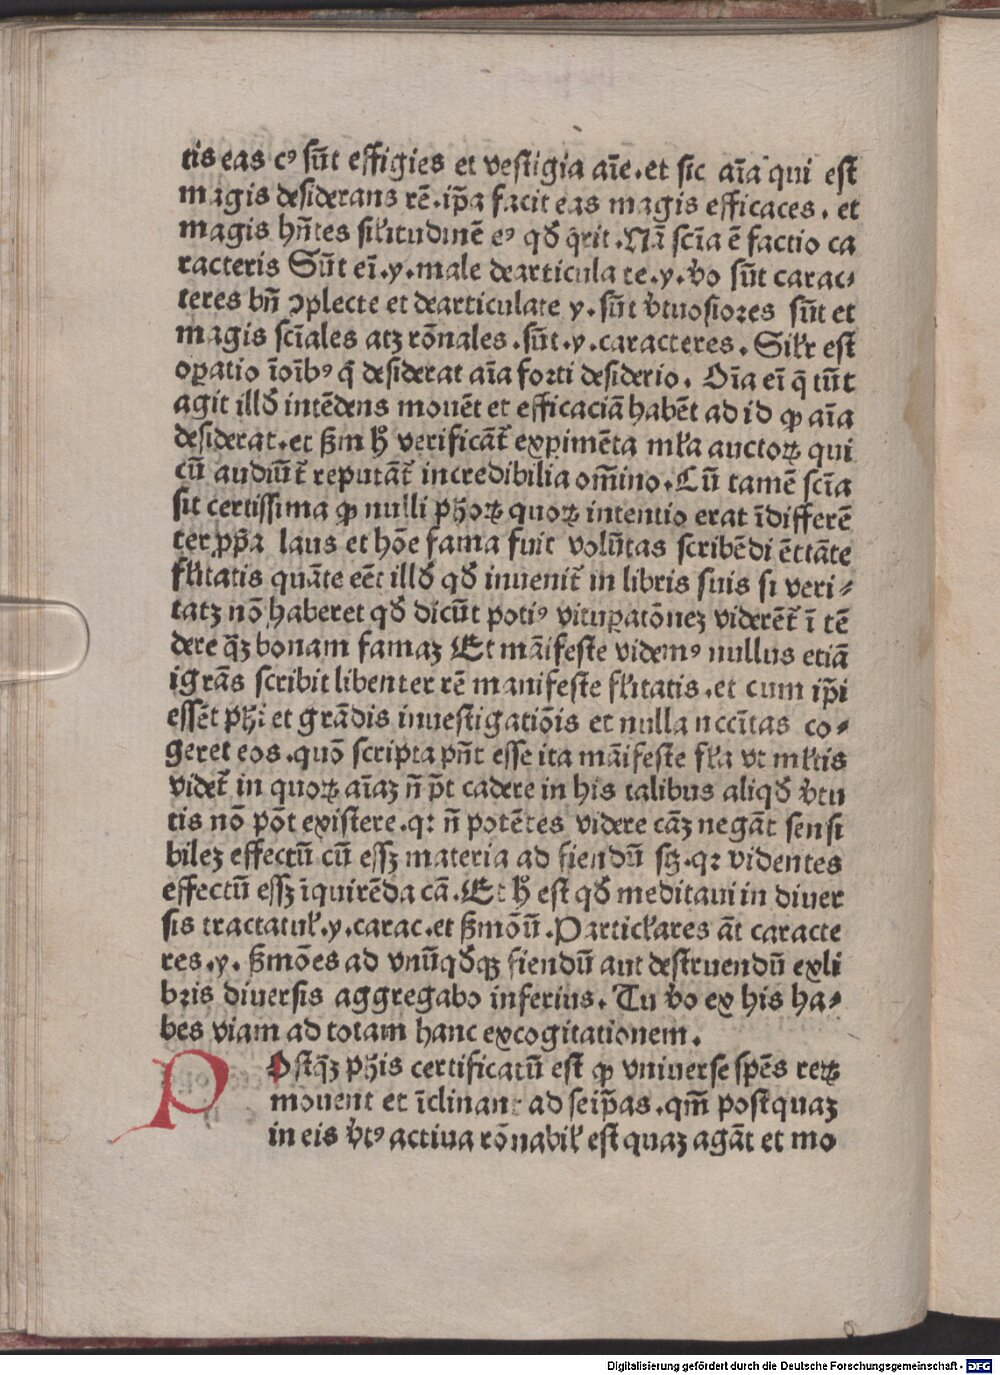 tis eas cꝰ sūt effigies et vestigia aīe.et sic aīa qui est
magis desiderans rē.ip̄a facit eas magis efficaces. et
magis hn̄tes silitudinē eꝰ qd̄ q̄rit.Nā scīa ē factio ca
racteris Sūt eī.y.male dearticula te.y.v̄o sūt carac⸗
teres bn̄ ꝯplecte et dearticulate y.sūt v̄tuosiores sūt et
magis scīales atqꝫ rōnales.sūt.y.caracteres. Silr est
oꝑatio īoībꝰ q̄ desiderat aīa forti desiderio. Oīa eī q̄ tūt
agit illd̄ intēdens mouēt et efficaciā habēt ad id ꝙ aīa
desiderat.et ẜm h̄ verificāt̄ exꝑimēta mꝉa auctoꝝ qui
cū audiūt̄ reputāt̄ incredibilia om̄ino.Cū tamē scīa
sit certissima ꝙ nulli ph̄oꝝ quoꝝ intentio erat īdifferē
ter ꝓp̄a laus et hōe fama fuit volūtas scribēdi ēttāte
fꝉitatis quāte eēt illd̄ qd̄ inuenit̄ in libris suis si veri⸗
tatꝫ nō haberet qd̄ dicūt potiꝰ vituꝑatōneꝫ viderēt̄ ī tē
dere q̄ꝫ bonam famaꝫ Et māifeste videmꝰ nullus etiā
igrās scribit libenter rē manifeste fꝉitatis.et cum ip̄i
essēt ph̄i et grādis inuestigatiōis et nulla nccītas co⸗
geret eos.quō scripta pn̄t esse ita māifeste fꝉa vt mꝉtis
videt̄ in quoꝝ aīaꝫ n̄ p̄t cadere in his talibus aliqd̄ v̄tu
tis nō pōt existere.qꝛ n̄ potētes videre cāꝫ negāt sensi
bileꝫ effectū cū essꝫ materia ad fiendū sꝫ.qꝛ videntes
effectū essꝫ īquirēda cā.Et h̄ est qd̄ meditaui in diuer
sis tractatuꝉ.y.carac.et ẜmōū.Particꝉares āt caracte
res.y. ẜmōes ad vnūqd̄qꝫ fiendū aut destruendū exli
bris diuersis aggregabo inferius. Tu v̄o ex his ha⸗
bes viam ad totam hanc excogitationem.
POstq̄ꝫ ph̄is certificatū est ꝙ vniuerse sp̄es reꝝ
mouent et īclinant ad seip̄as.qm̄ postquaꝫ
in eis v̄tꝰ actiua rōnabiꝉ est quaꝫ agāt et mo
Digitalisierung gefördert durch die Deutsche Forschungsgemeinschaft - DFG